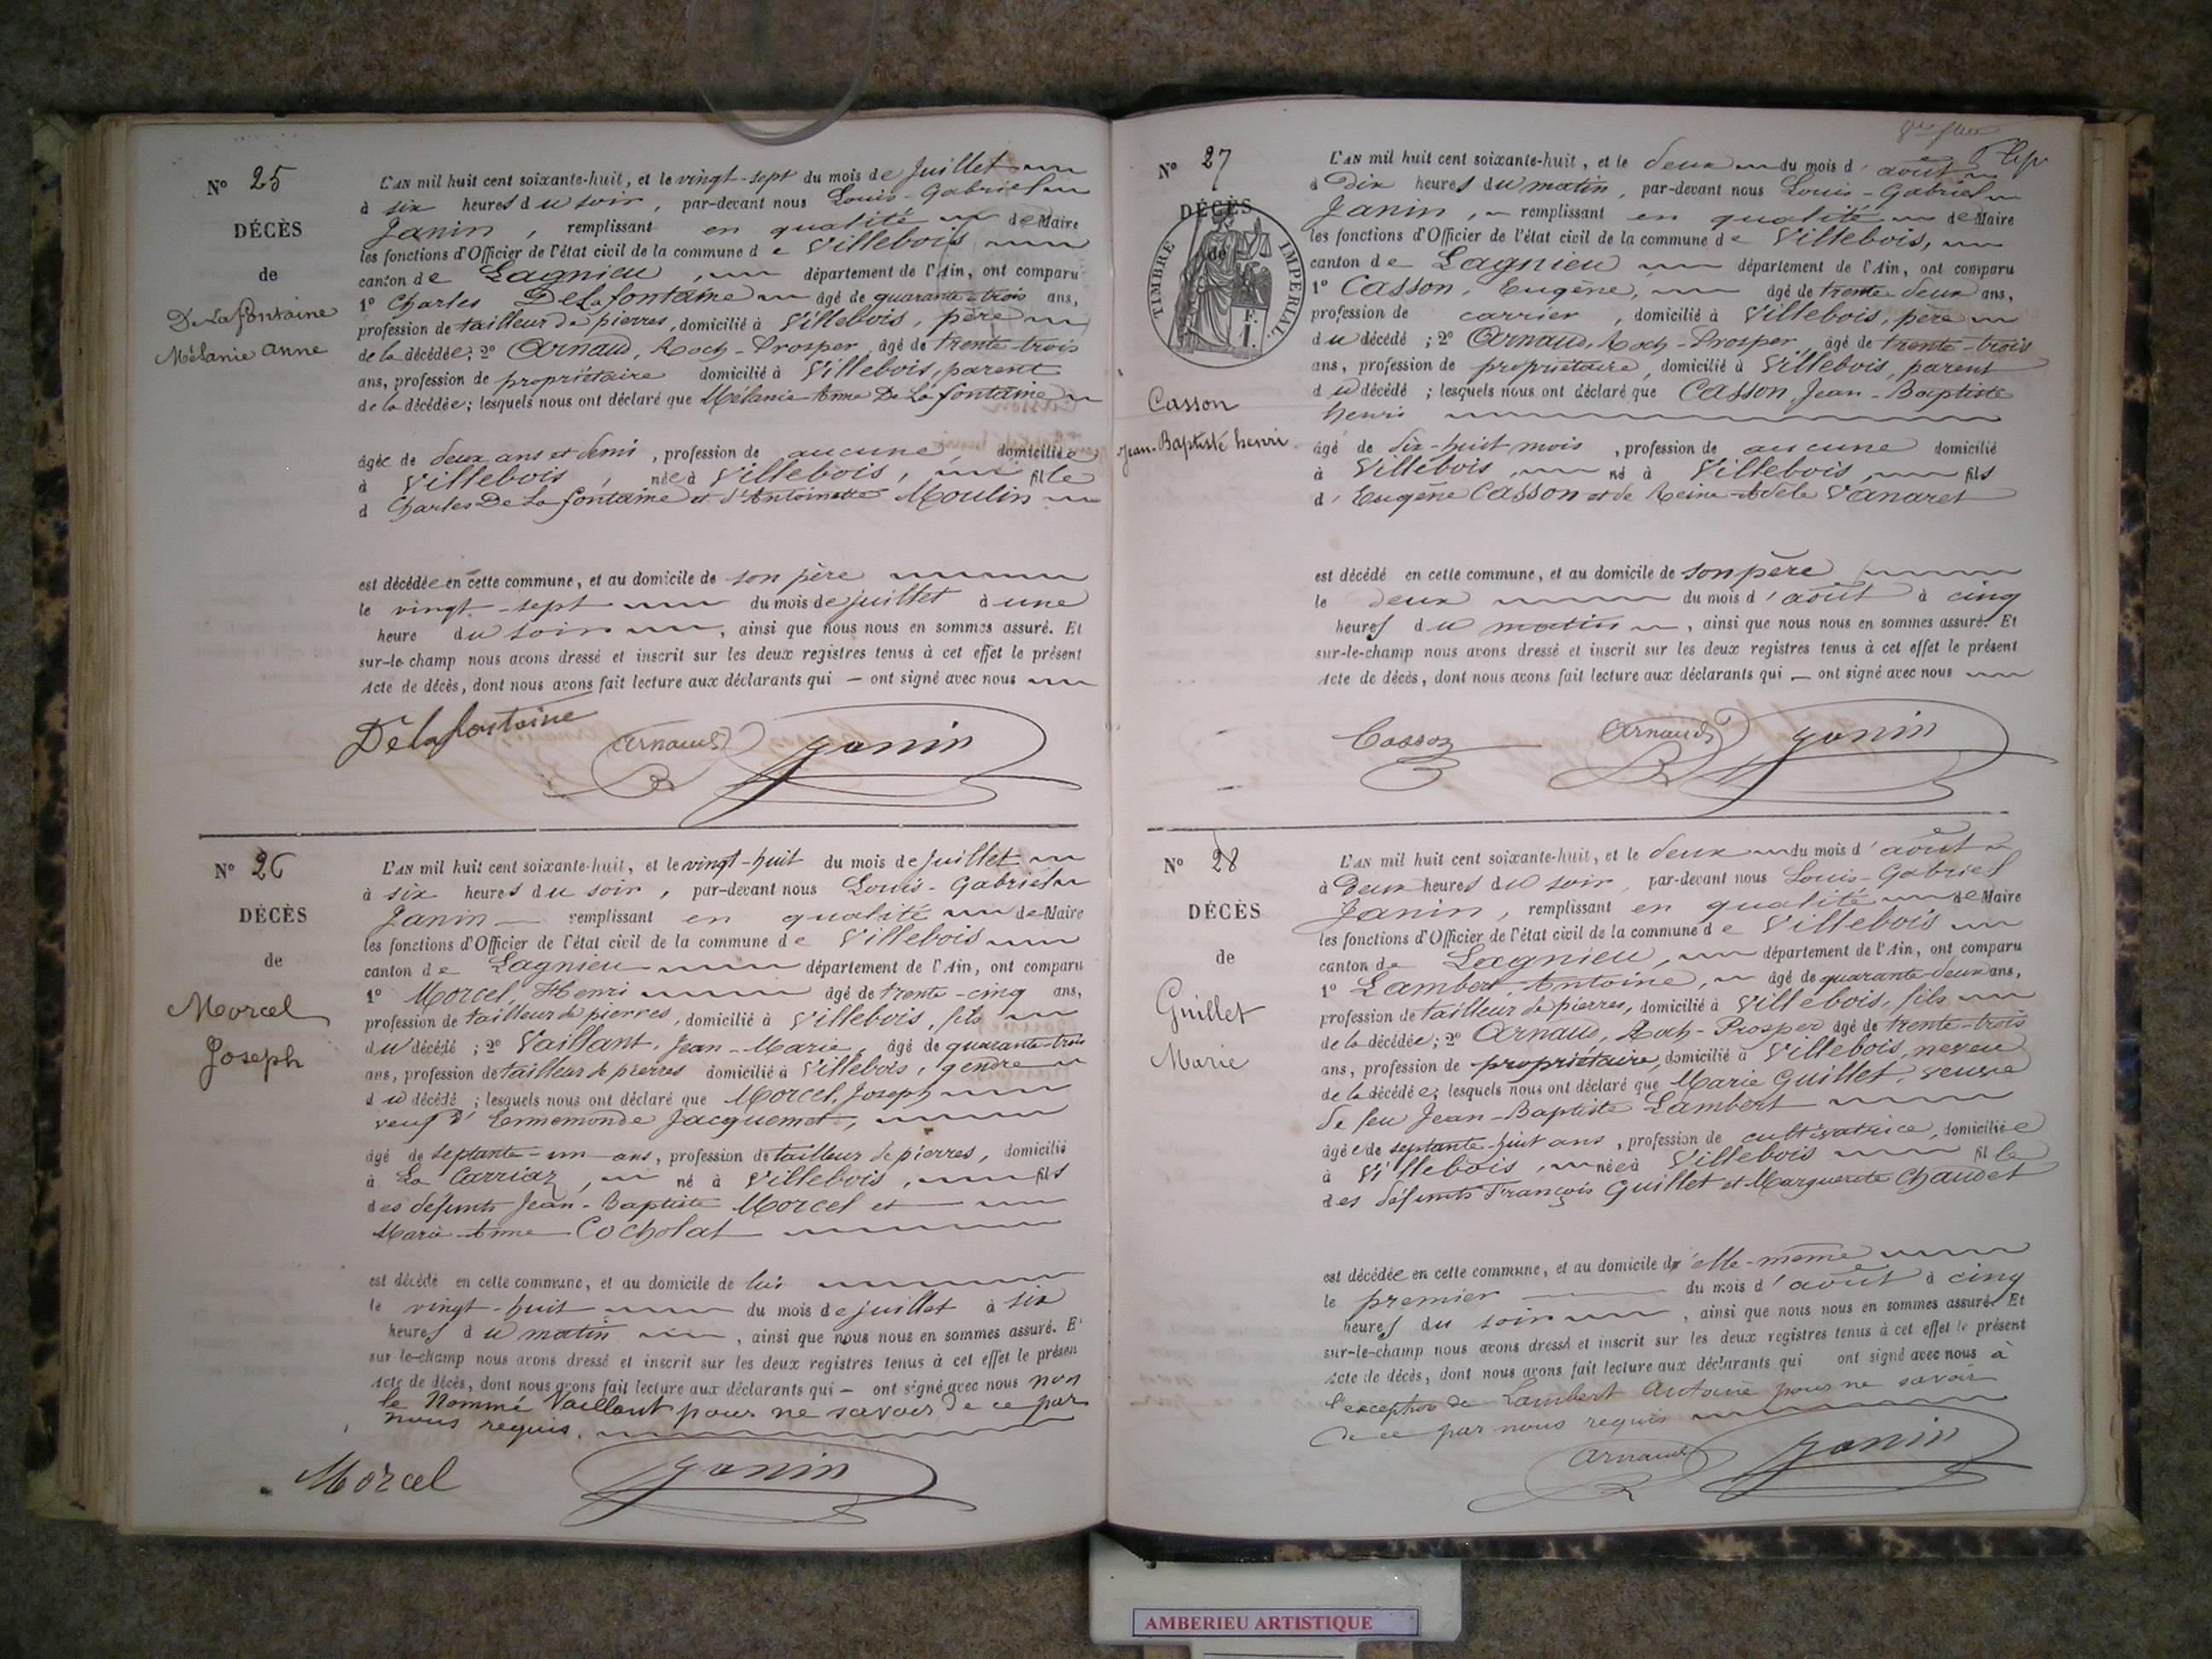 N° 25
DÉCÈS
de
De Lafontaine
Mélanie Anne
L'AN mil huit cent soixante-huit, et le vingt-sept du mois de Juillet
à six heures du soir, par-devant nous Louis-Gabriel
Janin, remplissant en qualité de Maire
les fonctions d'Officier de l'état civil de la commune de Villebois
canton de Lagnieu, département de l'Ain, ont comparu
1° Charles De Lafontaine âgé de quarante-trois ans,
profession de tailleur de pierres, domicilié à Villebois, père
de la décédée; 2° Arnaud, Roch-Prosper, âgé de trente-trois
ans, profession de propriétaire domicilié à Villebois, parent
de la décédée; lesquels nous ont déclaré que Mélanie Anne De La fontaine
âgée de deux ans et demi, profession de aucune, domiciliée
à Villebois, née à Villebois, fille
d Charles De La fontaine et d'Antoinette Moulin
est décédée en cette commune, et au domicile de son père
le vingt-sept du mois de juillet à une
heure du soir, ainsi que nous nous en sommes assuré. Et
sur-le-champ nous avons dressé et inscrit sur les deux registres tenus à cet effet le présent
Acte de décès, dont nous avons fait lecture aux déclarants qui — ont signé avec nous
Delafontaine Arnaud Janin
N° 26
DÉCÈS
de
Morcel
Joseph
L'AN mil huit cent soixante-huit, et le vingt-huit du mois de Juillet
à six heures du soir, par-devant nous Louis-Gabriel
Janin — remplissant en qualité de Maire
les fonctions d'Officier de l'état civil de la commune de Villebois
canton de Lagnieu département de l'Ain, ont comparu
1° Morcel, Henri âgé de trente-cinq ans,
profession de tailleur de pierres, domicilié à Villebois, fils
du décédé; 2° Vaillant, Jean-Marie, âgé de quarante-trois
ans, profession de tailleur de pierres domicilié à Villebois, gendre
du décédé; lesquels nous ont déclaré que Morcel, Joseph
veuf d'Ennemonde Jacquemet,
âgé de septante-un ans, profession de tailleur de pierres, domicilié
à La Carriaz, né à Villebois, fils
des défunts Jean-Baptiste Morcel et
Marie Anne Cocholat
est décédé en cette commune, et au domicile de lui
le vingt-huit du mois de juillet à six
heures du matin, ainsi que nous nous en sommes assuré. Et
sur-le-champ nous avons dressé et inscrit sur les deux registres tenus à cet effet le présen
Acte de décès, dont nous avons fait lecture aux déclarants qui — ont signé avec nous non
le Nommé Vaillant pour ne savoir de ce par
nous requis.
Morcel Janin
N° 27
DÉCÈS
de
TIMBRE IMPÉRIAL
Casson
Jean-Baptiste henri
L'AN mil huit cent soixante-huit, et le deux du mois d'août
à Dix heures du matin, par-devant nous Louis-Gabriel
Janin, remplissant en qualité de Maire
les fonctions d'Officier de l'état civil de la commune de Villebois,
canton de Lagnieu département de l'Ain, ont comparu
1° Casson, Eugène, âgé de trente-deux ans,
profession de carrier, domicilié à Villebois, père
du décédé; 2° Arnaud, Roch-Prosper, âgé de trente-trois
ans, profession de propriétaire, domicilié à Villebois, parent
du décédé; lesquels nous ont déclaré que Casson, Jean-Baptiste
henri
âgé de dix-huit mois, profession de aucune domicilié
à Villebois, né à Villebois, fils
d'Eugène Casson et de Reine-Adèle Vanaret
est décédé en cette commune, et au domicile de son père
le deux du mois d'août à cinq
heures du matin, ainsi que nous nous en sommes assuré. Et
sur-le-champ nous avons dressé et inscrit sur les deux registres tenus à cet effet le présent
Acte de décès, dont nous avons fait lecture aux déclarants qui — ont signé avec nous
Casson Arnaud Janin
N° 28
DÉCÈS
de
Guillet
Marie
L'AN mil huit cent soixante-huit, et le deux du mois d'août
à Deux heures du soir, par-devant nous Louis-Gabriel
Janin, remplissant en qualité de Maire
les fonctions d'Officier de l'état civil de la commune de Villebois
canton de Lagnieu, département de l'Ain, ont comparu
1° Lambert, Antoine, âgé de quarante-deux ans,
profession de tailleur de pierres, domicilié à Villebois, fils
de la décédée; 2° Arnaud, Roch-Prosper, âgé de trente-trois
ans, profession de propriétaire, domicilié à Villebois, neveu
de la décédée; lesquels nous ont déclaré que Marie Guillet, veuve
de feu Jean-Baptiste Lambert
âgée de septante-huit ans, profession de cultivatrice, domiciliée
à Villebois, née à Villebois fille
des défunts François Guillet et Marguerite Chaudet
est décédée en cette commune, et au domicile d'elle-même
le premier du mois d'août à cinq
heures du soir, ainsi que nous nous en sommes assuré. Et
sur-le-champ nous avons dressé et inscrit sur les deux registres tenus à cet effet le présent
Acte de décès, dont nous avons fait lecture aux déclarants qui ont signé avec nous à
l'exception de Lambert Antoine pour ne savoir
de ce par nous requis
Arnaud Janin
AMBERIEU ARTISTIQUE